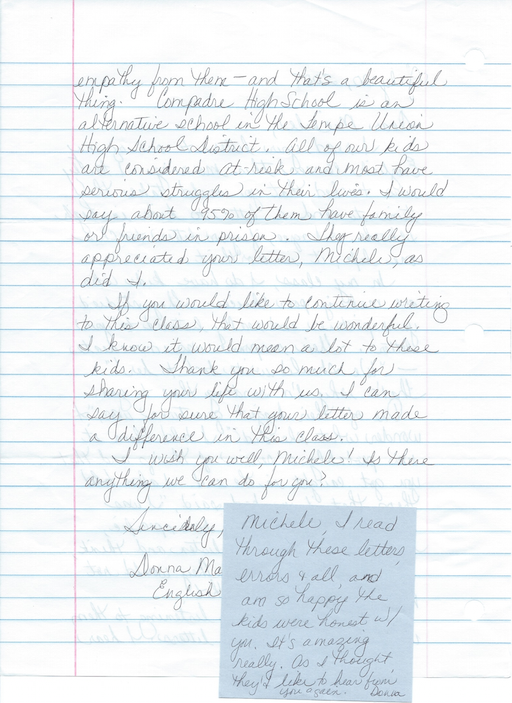 empathy from them – and that's a beautiful
thing. Compadre High School is an
alternative school in the Tempe Union
High School District. All of our kids
are considered at-risk and most have
serious struggles in their lives. I would
say about 95% of them have family
or friends in prison. They really
appreciated your letter, Michele, as
did I.
If you would like to continue writing
to this class that would be wonderful.
I know it would mean a lot to these
kids. Thank you so much for
sharing your life with us. I can
say for sure that your letter made
a difference in this class.
I wish you well, Michele! Is there
anything we can do for you?
Sincerely,
Donna Ma
English
Michele, I read
through these letters,
errors & all, and
am so happy the
kids were honest w/
you. It's amazing
really. As I thought
they'd like to hear from
you again. Donna